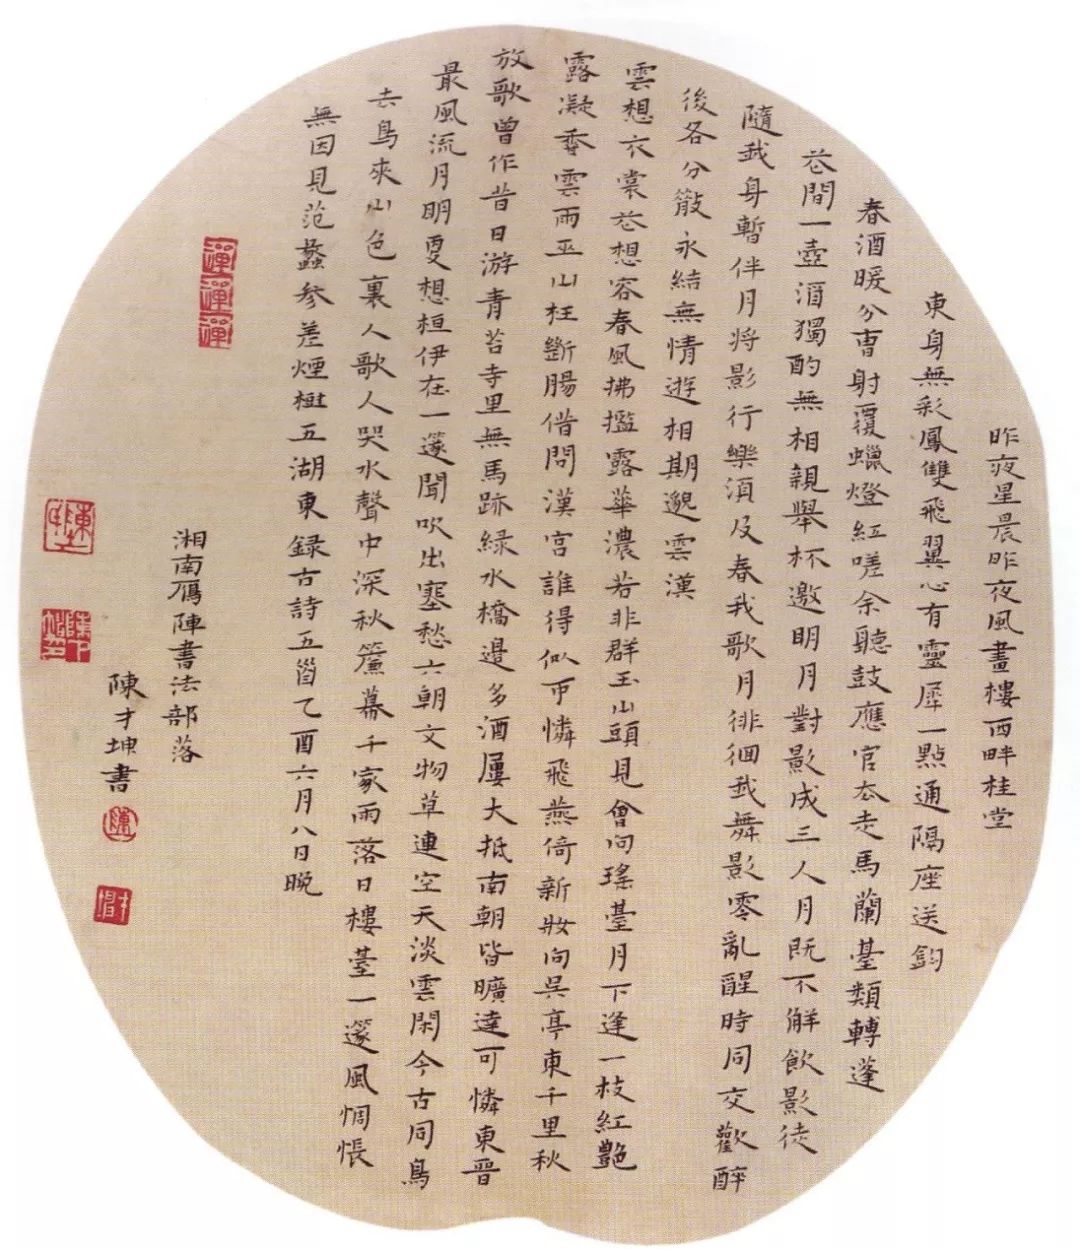 昨夜星晨昨夜風畫樓西畔桂堂
東身無彩鳳雙飛翼心有靈犀一點通隔座送鈎
春酒暖分曹射覆蠟燈紅嗟余聽鼓應官去走馬蘭臺類轉蓬
花間一壺酒獨酌無相親舉杯邀明月對影成三人月既不解飲影徒
隨我身暫伴月將影行樂須及春我歌月徘徊我舞影零亂醒時同交歡醉
後各分散永結無情遊相期邈雲漢
雲想衣裳花想容春風拂檻露華濃若非群玉山頭見會向瑤臺月下逢一枝紅艷
露凝香雲雨巫山枉斷腸借問漢宮誰得似可憐飛燕倚新妝向吳亭東千里秋
放歌曾作昔日游青苔寺里無馬跡綠水橋邊多酒屢大抵南朝皆曠達可憐東晉
最風流月明更想桓伊在一邃聞吹出塞愁六朝文物草連空天淡雲閑今古同鳥
去鳥來山色裏人歌人哭水聲中深秋簾幕千家雨落日樓臺一邃風惆悵
無因見范蠡參差煙樹五湖東錄古詩五首乙酉六月八日晚
湘南雁陣書法部落
陳才坤書